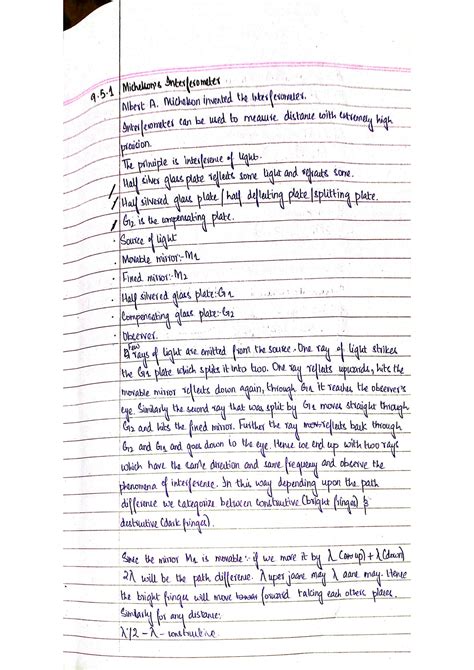 9.5.1 Michelson's Interferometer
Albert A. Michelson invented the interferometer.
Interferometer can be used to measure distance with extremely high
precision.
The principle is interference of light.
Half silver glass plate reflects some light and refracts some.
Half silvered glass plate / half deflecting plate / splitting plate.
G2 is the compensating plate.
· Source of light
· Movable mirror:- M1
· Fixed mirror:- M2
· Half silvered glass plate: G1
· Compensating glass plate:- G2
· Observer.
Few
rays of light are emitted from the source. One ray of light strikes
the G1 plate which splits it into two. One ray reflects upwards, hits the
movable mirror reflects down again, through G1 it reaches the observer's
eye. Similarly the second ray that was split by G1 moves straight through
G2 and hits the fixed mirror. Further the ray reflects back through
G2 and G1 and goes down to the eye. Hence we end up with two rays
which have the same direction and same frequency and observe the
phenomena of interference. In this way depending upon the path
difference we categorize between constructive (bright fringes) &
destructive (dark fringes).
Since the mirror M1 is movable:- if we move it by λ (up) + λ (down)
2λ will be the path difference. λ uper jaane may λ aane may. Hence
the bright fringes will move forward taking each others places.
Similarly for any distance:
λ/2 - λ - constructive.